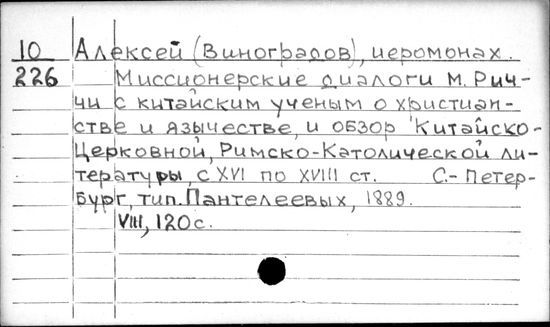 10 Алексей (Виноградов), иеромонах.
226 Миссионерские диалоги М. Рич-
чи с китайским ученым о христиан-
стве и язычестве, и обзор Китайско-
Церковной, Римско-Католической ли-
тературы, с XVI по XVIII ст. С.-Петер-
бург, тип. Пантелеевых, 1889.
VIII, 120 с.